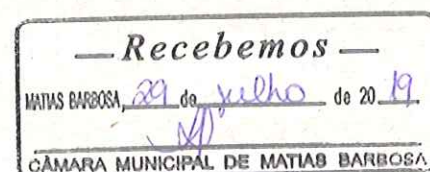 — Recebemos —
MATIAS BARBOSA, 29 de julho de 20 19
CÂMARA MUNICIPAL DE MATIAS BARBOSA